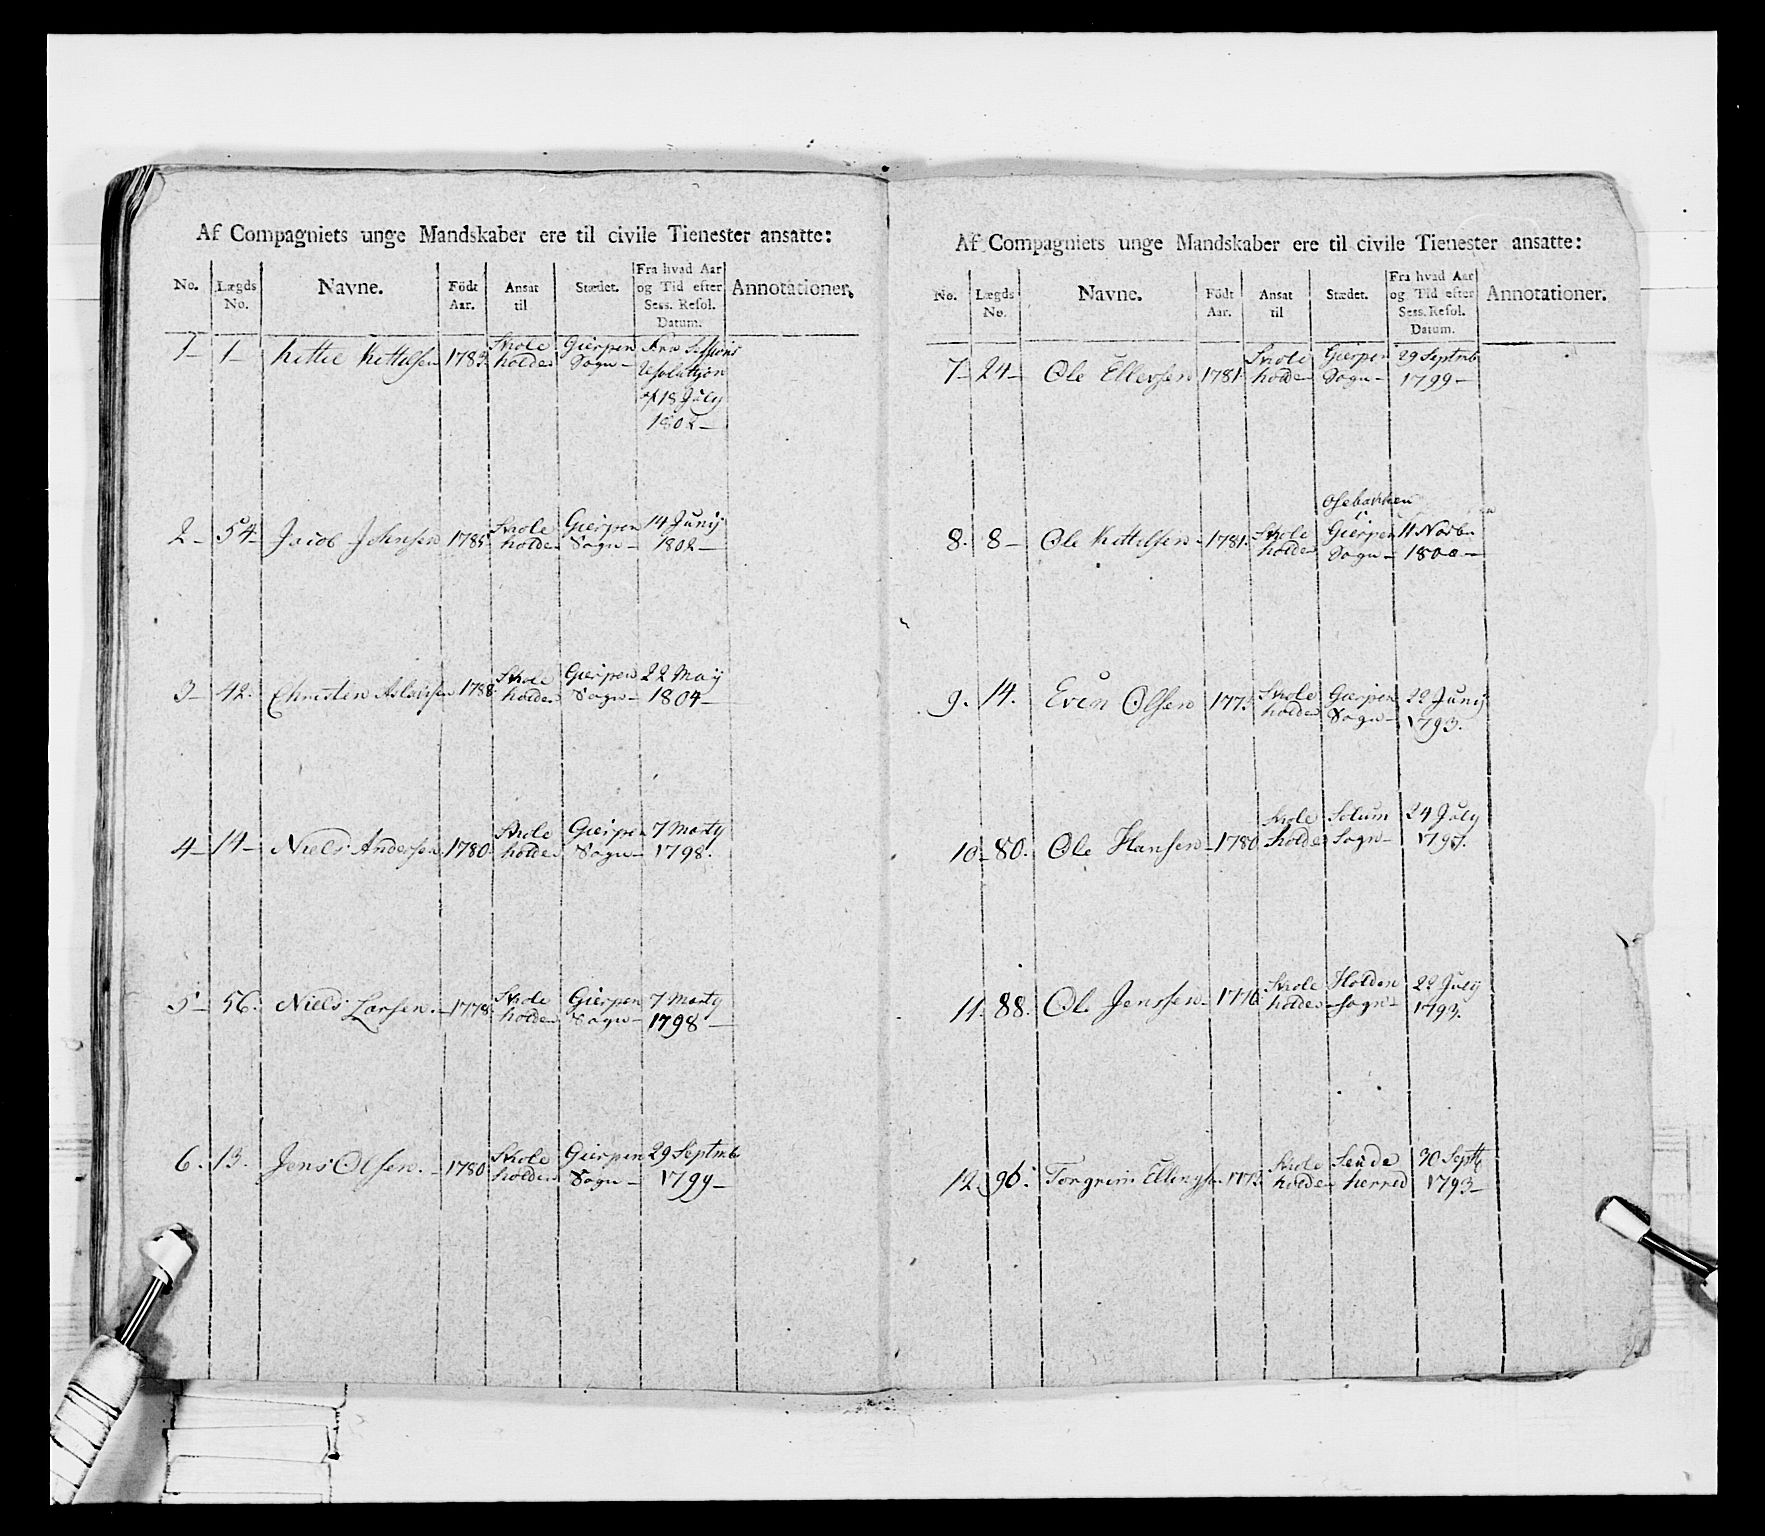 Af Compagniets unge Mandskaber ere til civile Tienester ansatte:
No. Lægds No. Navne. Födt Aar. Ansat til Stædet. Fra hvad Aar og Tid efter Sess. Resol. Datum. Annotationer.
1- 1- Kittil Kittelsen 1783 Skole holder Gierpen Sogn- Fra Sessions Resolution af 18 July 1802-
2- 54- Jacob Johnsen 1785 Skole holder Gierpen Sogn- 14 Junij 1802-
3- 42. Christen Aslacsen 1788. Skole holder Gierpen Sogn- 22 May 1804-
4- 14- Niels Andersen 1780. Skole holder Gierpen Sogn- 7 Marty 1798.
5- 56. Niels Larsen.- 1778. Skole holder Gierpen Sogn- 7 Marty 1798-
6. 13. Jens Olsen.- 1780 Skole holder Gierpen Sogn- 29 Septmb 1799-
Af Compagniets unge Mandskaber ere til civile Tienester ansatte:
No. Lægds No. Navne. Födt Aar. Ansat til Stædet. Fra hvad Aar og Tid efter Sess. Resol. Datum. Annotationer.
7- 24- Ole Ellevsen 1781. Skole holder Gierpen Sogn- 29 Septmb 1799-
8. 8- Ole Kittelsen- 1781. Skole holder Osebakken i Gierpen Sogn- 11 Novbr 1800-
9. 14. Even Olssen 1775 Skole holder Gierpen Sogn- 22 Junij 1793.
10- 80. Ole Hansen- 1780 Skole holder Solum Sogn- 24 July 1797.
11. 88. Ole Jenssen- 1776 Skole holder Holden Sogn- 22 July 1793.
12. 96. Torgrim Ellingsen 1773 Skole holder Seude herred 30 Septb 1793-